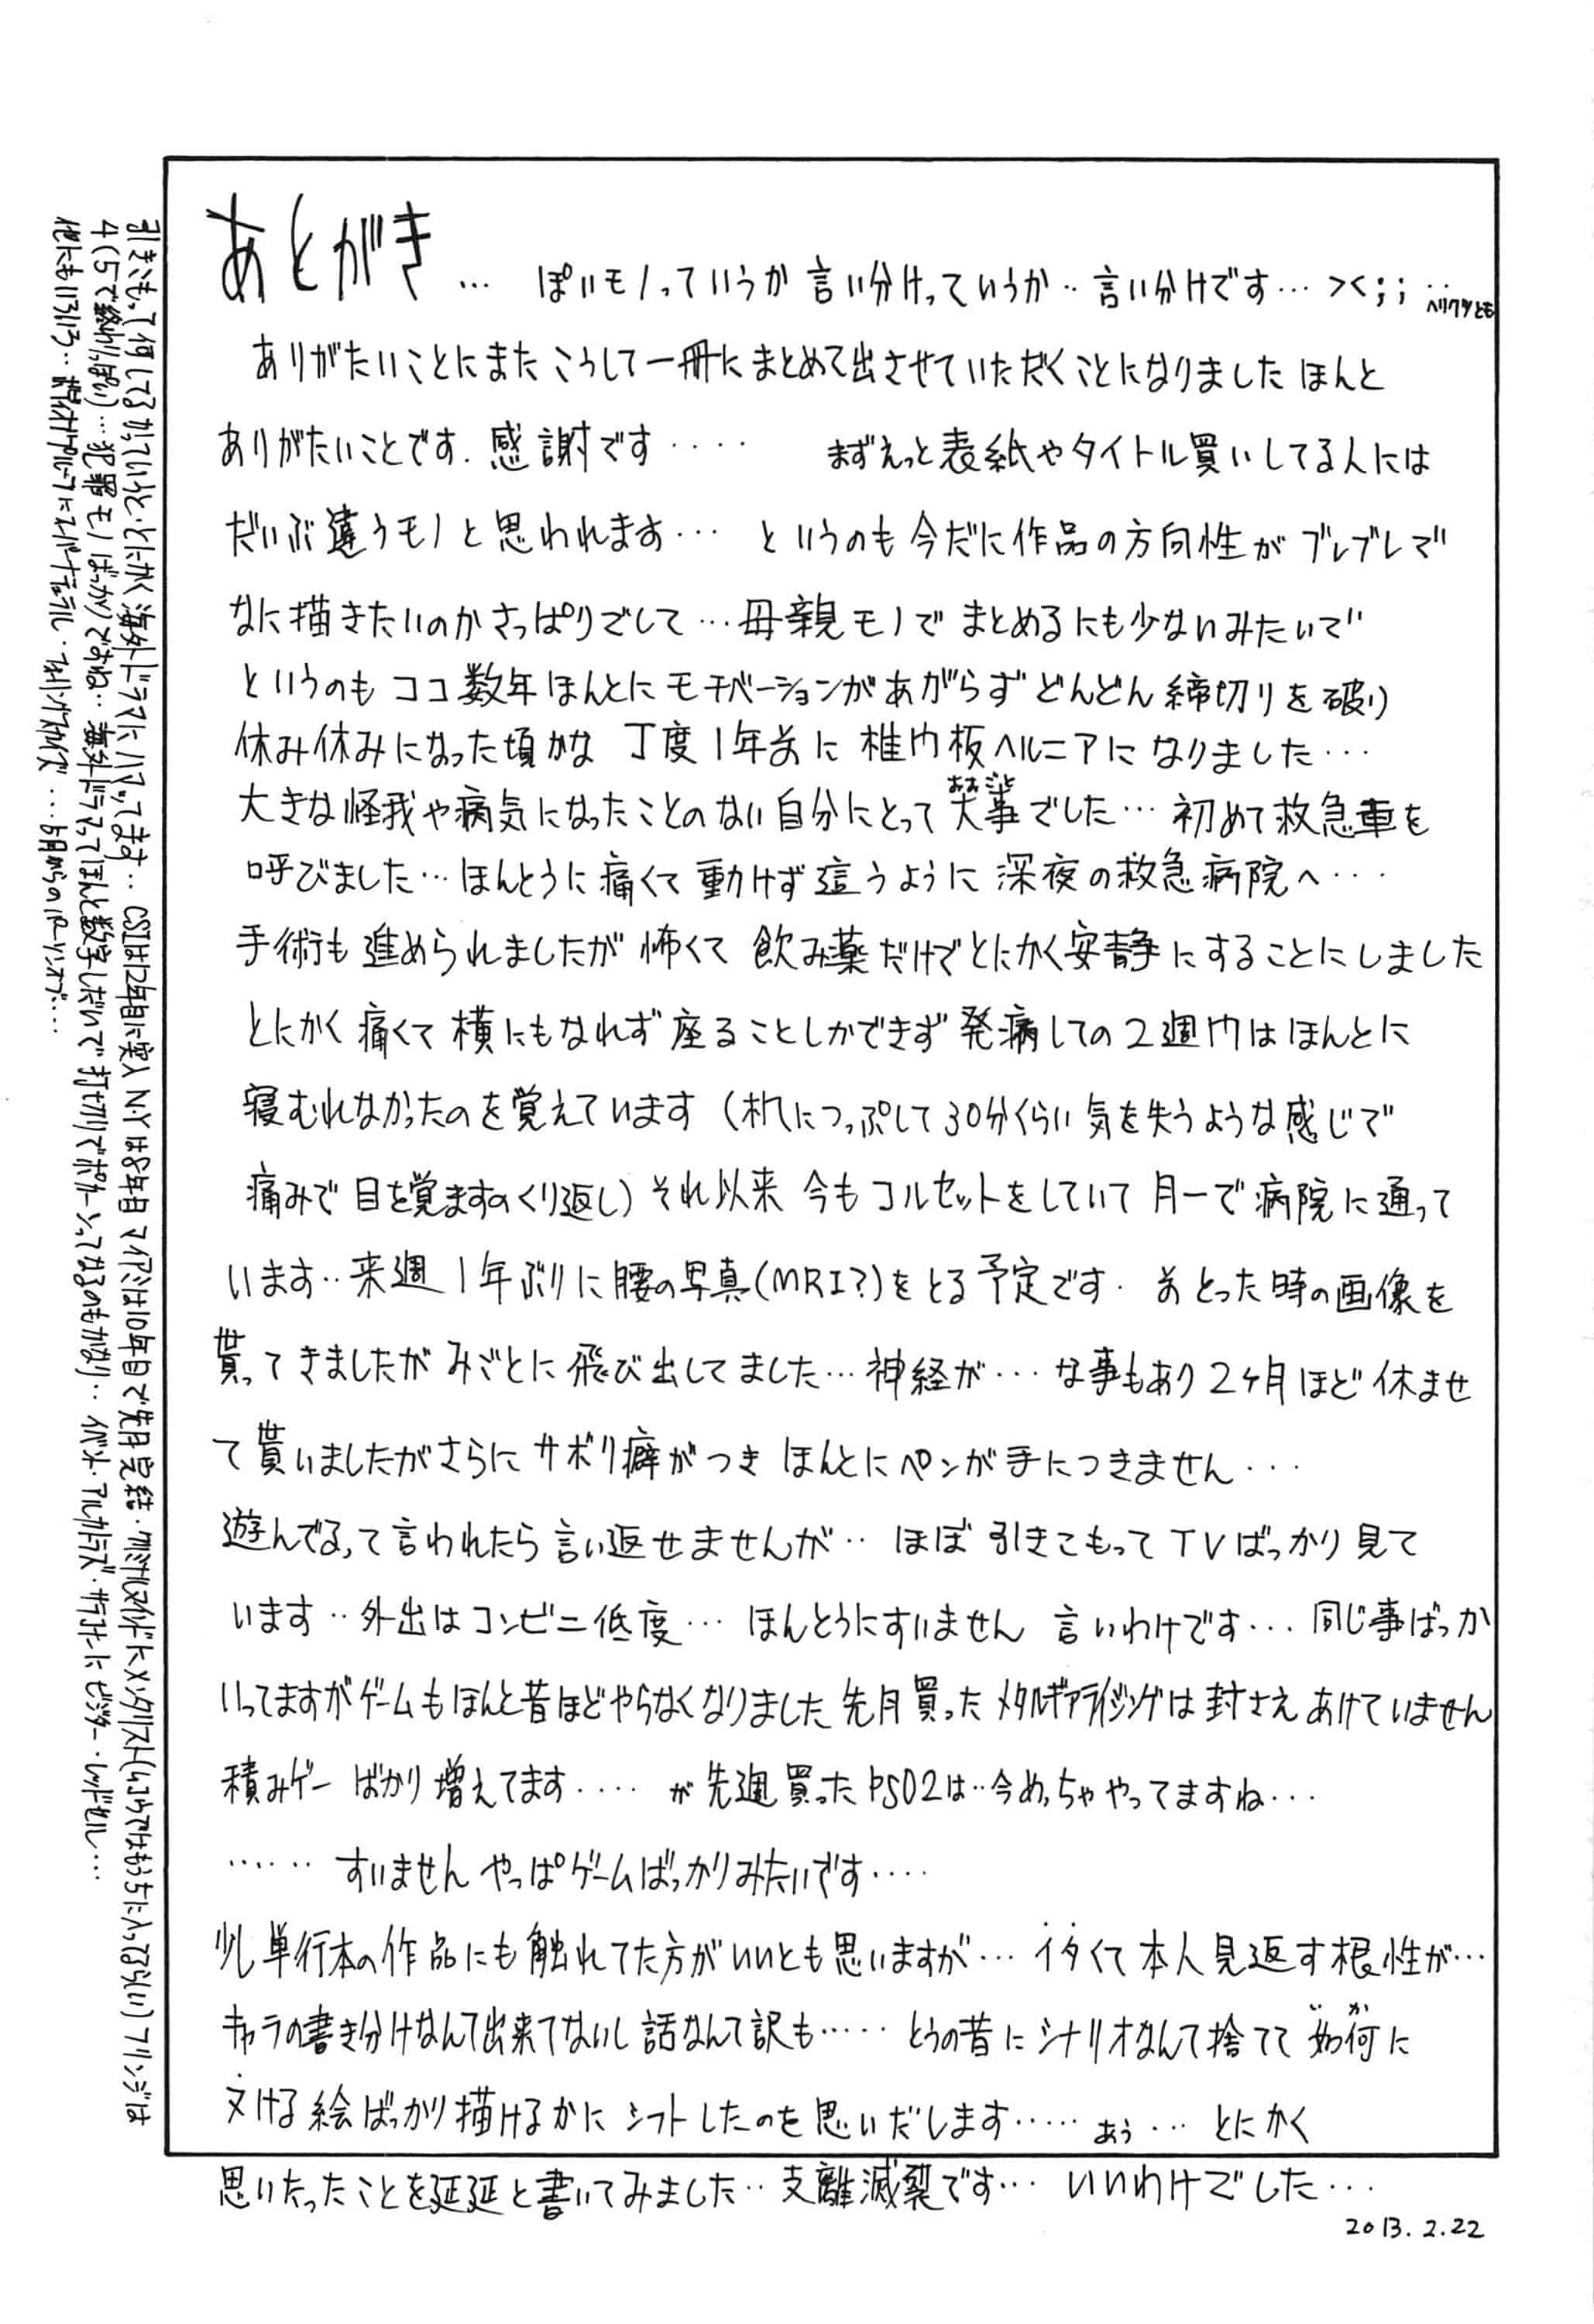 あとがき… ぽいモノっていうか 言い分けっていうか‥言い分けです… ><;; ‥ヘリクツとも
ありがたいことにまた こうして一冊に まとめて出させていただくことになりました ほんと
ありがたいことです. 感謝です‥‥ まずえっと表紙やタイトル買いしてる人には
だいぶ違うモノと思われます… というのも今だに作品の方向性が ブレブレで
なに描きたいのかさっぱりでして…母親モノで まとめるにも少ないみたいで
というのも ココ数年ほんとに モチベーションがあがらずどんどん締切りを破り
休み休みになった頃かな 丁度1年前に 椎間板ヘルニアに なりました…
大きな怪我や病気になったことのない自分にとって大事でした… 初めて救急車を
おおごと
呼びました… ほんとうに痛くて動けず這うように深夜の救急病院へ…
手術も進められましたが怖くて 飲み薬だけでとにかく安静にすることにしました
とにかく痛くて横にもなれず座ることしかできず発病しての2週間はほんとに
寝むれなかったのを覚えています (机につっぷして30分くらい気を失うような感じで
痛みで目を覚ますのくり返し) それ以来 今もコルセットをしていて月一で病院に通って
います‥来週1年ぶりに腰の写真(MRI?)をとる予定です. 前とった時の画像を
貰ってきましたがみごとに飛び出してました…神経が…な事もあり2ヶ月ほど休ませ
て貰いましたがさらにサボり癖がつき ほんとにペンが手につきません…
遊んでるって言われたら言い返せませんが‥ ほぼ引きこもってTVばっかり見て
います‥外出はコンビニ低度… ほんとうにすいません 言いわけです… 同じ事ばっか
いってますがゲームもほんと昔ほどやらなくなりました 先月買ったメタルギアライジングは封さえあけていません
積みゲーばかり増えてます‥‥ が先週買ったPSO2は‥今めっちゃやってますね…
‥‥‥ すいません やっぱゲームばっかりみたいです‥‥
少し単行本の作品にも触れてた方がいいとも思いますが… イタくて本人見返す根性が…
キャラの書き分けなんて出来てないし話なんて訳も‥‥‥ とうの昔にシナリオなんて捨てて如何に
いか
ヌける絵ばっかり描けるかに シフトしたのを思いだします‥‥‥ あぅ… とにかく
思いたったことを延延と書いてみました‥支離滅裂です… いいわけでした…
2013.2.22
引きこもって何してるかっていうと・とにかく海外ドラマにハマってます‥ CSIは12年目に突入 N・Yは8年目 マイアミは10年目で先月完結・クリミナルマインドにメンタリスト(むこうではもう5に入ってるらしい) フリンジは
4(5で終わりっぽい)…犯罪モノばっかりですね‥海外ドラマってほんと数字しだいで打ち切りでポカーンってなるのもかなり‥ イベント・アルカトラズ・サラコナーに ビジター・レッドセル‥‥
他にもいろいろ‥ボディオブプルーフに スーパーナチュラル・フォーリングスカイズ…5月からのパーソンオブ‥‥